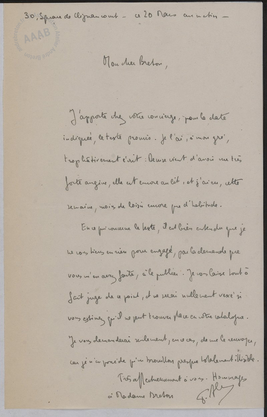 30, Square de Clignancourt - ce 20 Mars au matin -
AAAB
Mon cher Breton,
J'apporte chez votre concierge, pour la date
indiquée, le texte promis. Je l'ai, à mon gré,
trop hâtivement écrit. Denise vient d'avoir une très
forte angine, elle est encore au lit - et j'ai eu, cette
semaine, moins de loisir encore que d'habitude.
En ce qui concerne le texte, il est bien entendu que je
ne vous tiens en rien pour engagé, par la demande que
vous m'en avez faite, à le publier. Je vous laisse tout à
fait juge de ce point, et ne serai nullement vexé si
vous estimez qu'il ne peut trouver place en votre catalogue.
Je vous demanderai seulement, en ce cas, de me le renvoyer,
car je n'en possède qu'un brouillon presque totalement illisible.
Très affectueusement à vous. Hommages
à Madame Breton